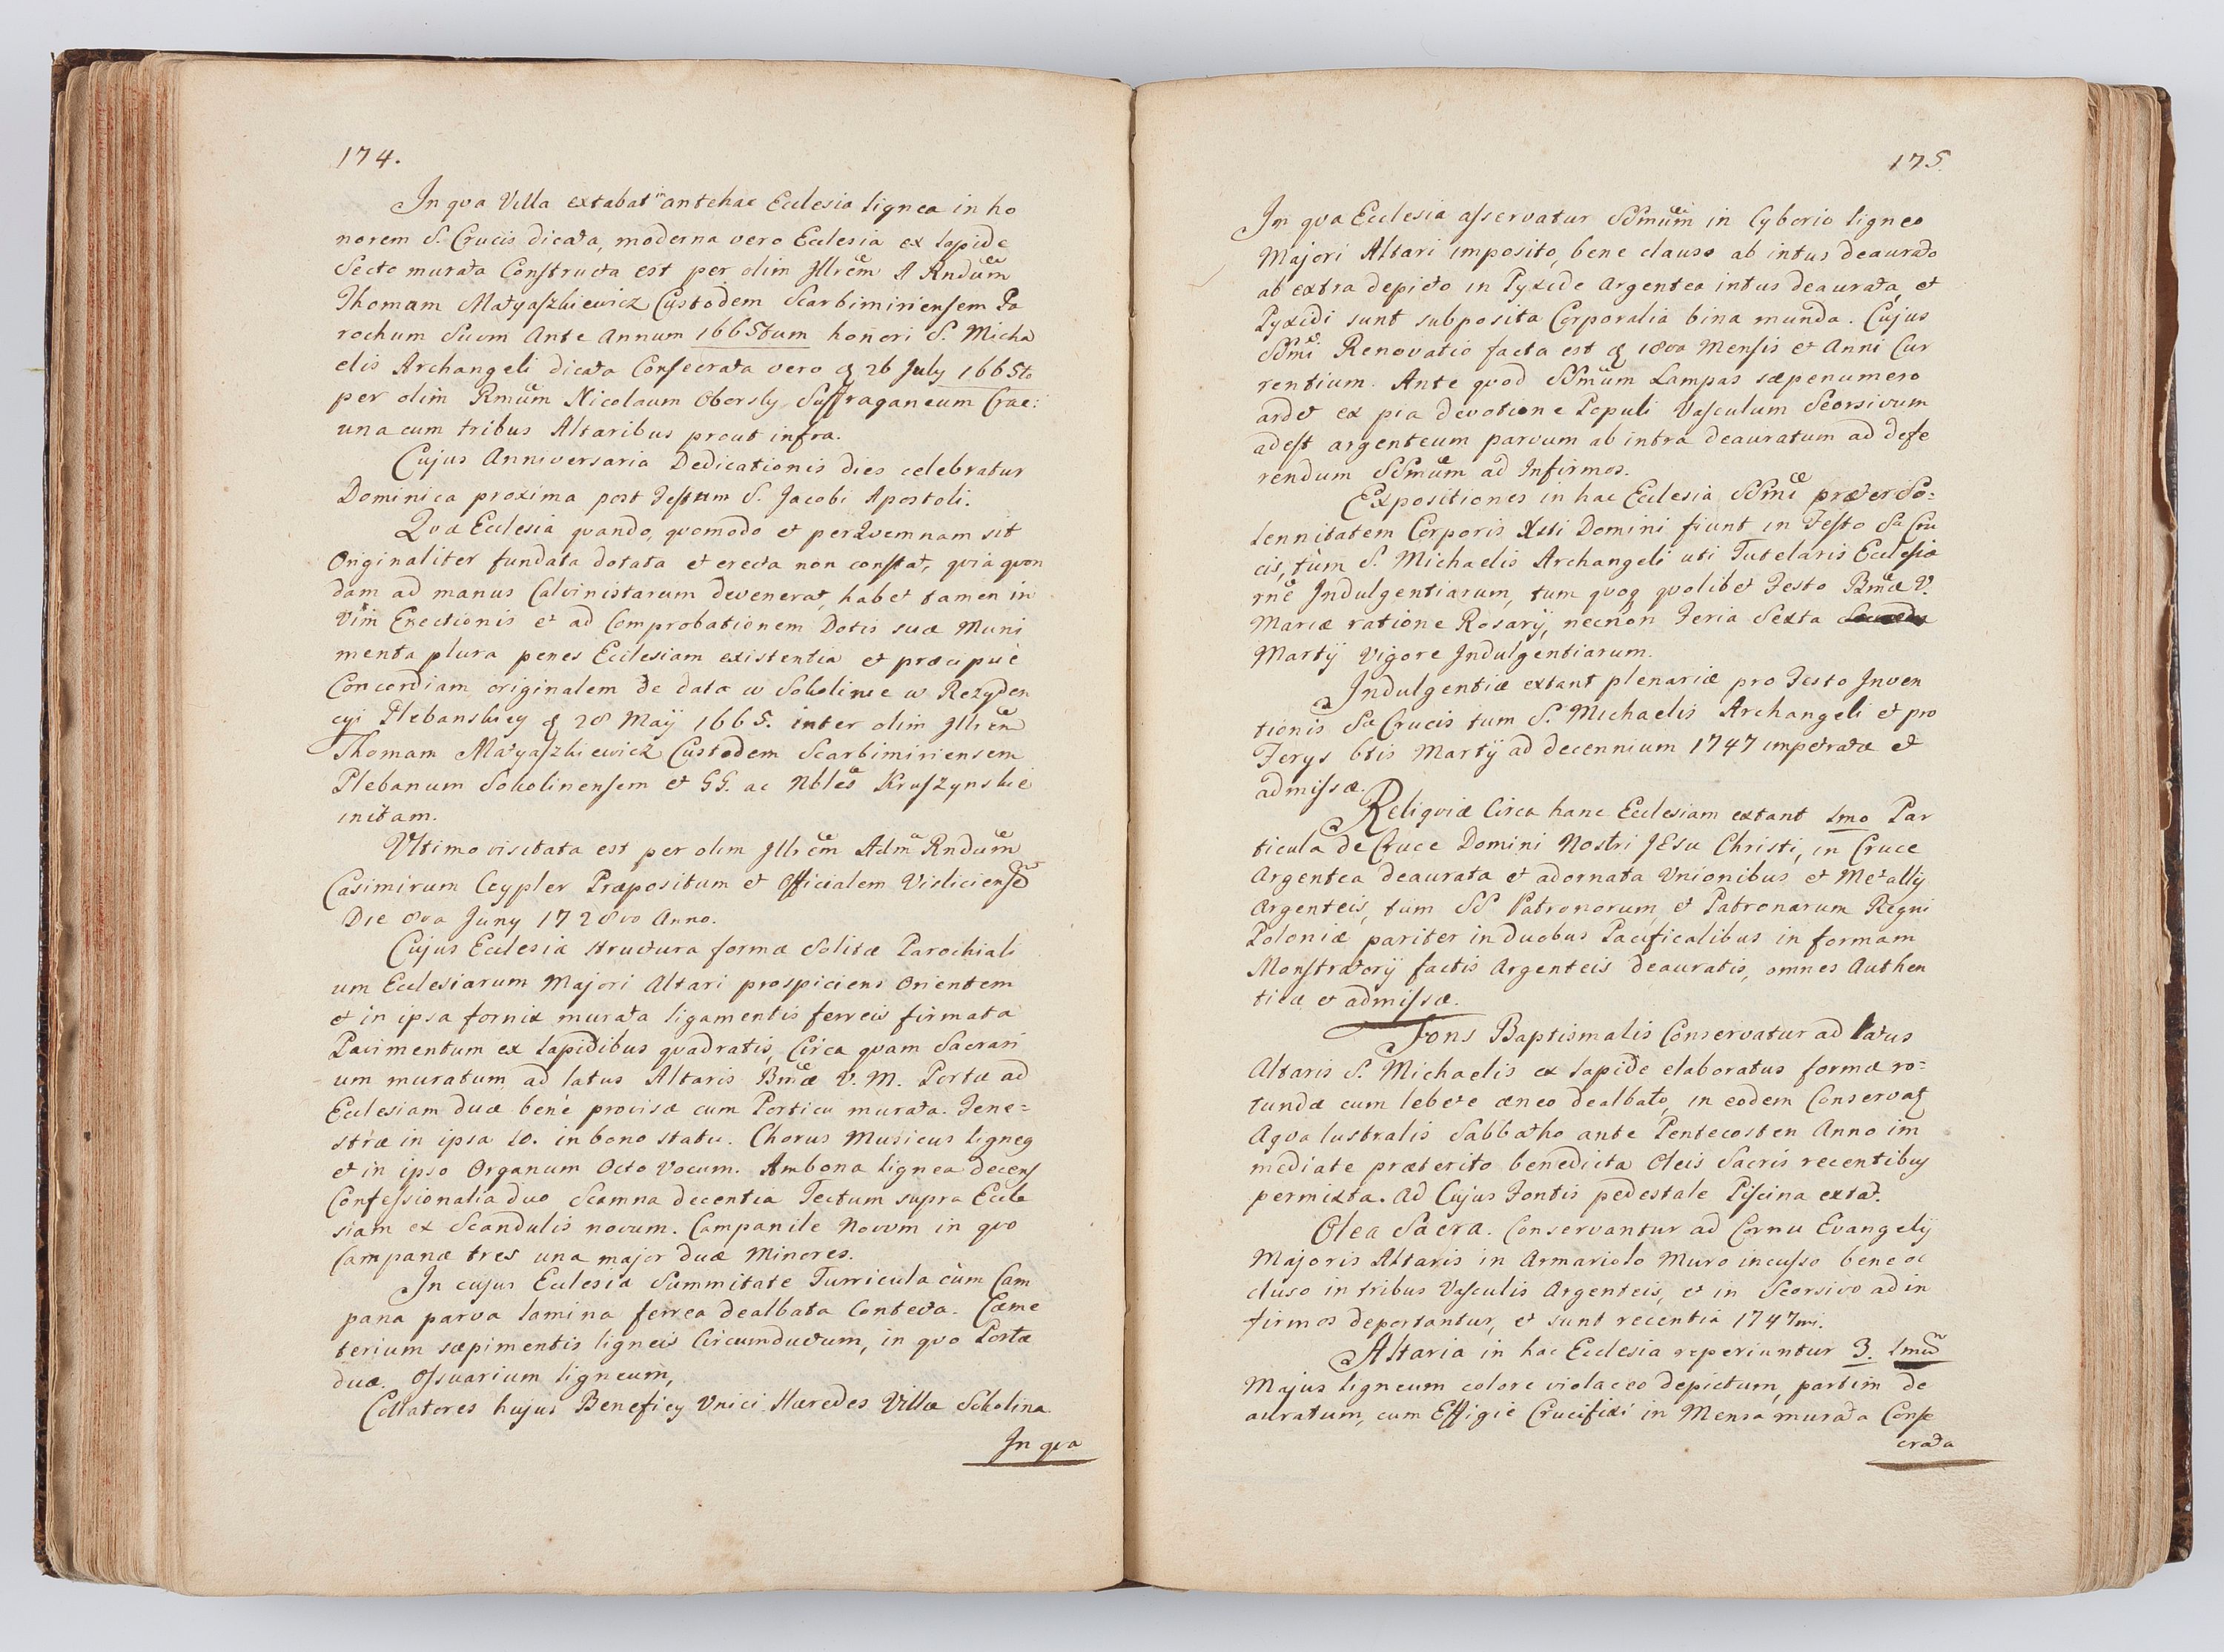 174.
In qva Villa extabat in antehac Ecclesia lignea in ho
norem S. Crucis dicata, moderna vero Ecclesia ex lapide
Secto murata Constructa est per olim Illrem A Rndum
Thomam Matyaszkiewicz Custodem Scarbimiriensem Pa
rochum Suum Ante Annum 1665tum honori S. Micha
elis Archangeli dicata Consecrata vero q 26 July 1665to
per olim Rmum Nicolaum Oborsky Suffraganeum Crac:
una cum tribus Altaribus prout infra.
Cujus Anniversaria Dedicationis dies celebratur
Dominica proxima post Festum S. Jacobi Apostoli.
Qva Ecclesia qvando, qvomodo et per Qvemnam sit
Originaliter fundata dotata et erecta non constat, qvia qvon
dam ad manus Calvinistarum devenerat, habet tamen in
Vim Erectionis et ad Comprobationem Dotis suæ Muni
menta plura penes Ecclesiam existentia et præcipuè
Concordiam originalem de data w Sokolinie w Rezyden
cyi Plebanskiey q 28 Maÿ 1665. inter olim Illrem
Thomam Matyaszkiewicz Custodem Scarbimiriensem
Plebanum Sokolinensem et GG. ac Nbles Kruszynskie
initam.
Ultimo visitata est per olim Illrem Adm Rndum
Casimirum Ceypler Præpositum et Officialem Visliciensem
Die 8va Juny 1728vo Anno.
Cujus Ecclesiæ structura forma Solitæ Parochiali
um Ecclesiarum Majori Altari prospiciens Orientem
et in ipsa fornix murata ligamentis ferreis firmata
Pavimentum ex lapidibus qvadratis, Circa qvam Sacrari
um muratum ad latus Altaris Bmæ V. M. Portæ ad
Ecclesiam duæ benè provisæ cum Porticu murata. Fene=
stræ in ipsa 10. in bono statu. Chorus Musicus ligneq
et in ipso Organum Octo Vocum. Ambona lignea decens
Confessionalia duo Scamna decentia Tectum supra Eccle
siam ex Scandulis novum. Campanile Novum in qvo
Campanæ tres una major duæ Minores.
In cujus Ecclesiæ Summitate Turricula cùm Cam
pana parva lamina ferrea dealbata Contecta. Cæme
terium sæpimentis ligneis Circumductum, in qvo Portæ
duæ. Ossuarium ligneum,
Collatores hujus Beneficy Unici Hæredes Villæ Sokolina
In qva
175.
In qva Ecclesia asservatur SSmum in Cyborio ligneo
Majori Altari imposito, bene clauso ab intus deaurato
ab extra depicto in Pyxide Argentea intus deaurata, et
Pyxidi sunt subposita Corporalia bina munda. Cujus
SSmi Renovatio facta est q 18va Mensis et Anni Cur
rentium. Ante qvod SSmum Lampas sæpenumero
ardet ex pia devotione Populi Vasculum Seorsivum
adest argenteum parvum ab intra deauratum ad defe
rendum SSmum ad Infirmos.
Expositiones in hac Ecclesia SSmi præter So=
lennitatem Corporis Xsti Domini fiunt in Festo Sæ Cru
cis, tùm S. Michaelis Archangeli uti Tutelaris Ecclesiæ
rne Indulgentiarum, tum qvoq qvolibet Festo Bmæ V.
Mariæ ratione Rosarÿ, necnon Feria Sexta
Martÿ Vigore Indulgentiarum.
Indulgentiæ extant plenariæ pro Festo Inven
tionis Sæ Crucis tum S. Michaelis Archangeli et pro
Ferys 6tis Martÿ ad decennium 1747 impetratæ et
admissæ.
Reliqviæ Circa hanc Ecclesiam extant 1mo Par
ticula de Cruce Domini Nostri JESu Christi, in Cruce
Argentea deaurata et adornata Unionibus et Metallÿ
Argenteis, tum SS Patronorum, et Patronarum Regni
Poloniæ pariter in duobus Pacificalibus in formam
Monstratorÿ factis Argenteis deauratis, omnes Authen
ticæ et admissæ.
Fons Baptismalis Conservatur ad latus
Altaris S. Michaelis ex lapide elaboratus formæ ro=
tundæ cum lebete æneo dealbato, in eodem Conservatq
Aqva lustralis Sabbatho ante Pentecosten Anno im
mediate præterito benedicta Oleis Sacris recentibus
permixta. Ad Cujus Fontis pedestale Piscina extat.
Olea Sacra. Conservantur ad Cornu Evangelÿ
Majoris Altaris in Armariolo Muro incusso bene oc
cluso in tribus Vasculis Argenteis, et in Seorsivo ad in
firmos deportantur, et sunt recentia 1747mi.
Altaria in hac Ecclesia reperiuntur 3. 1mum
Majus ligneum colore violaceo depictum, partim de
auratum, cum Effigie Crucifixi in Mensa murata Conse
crata